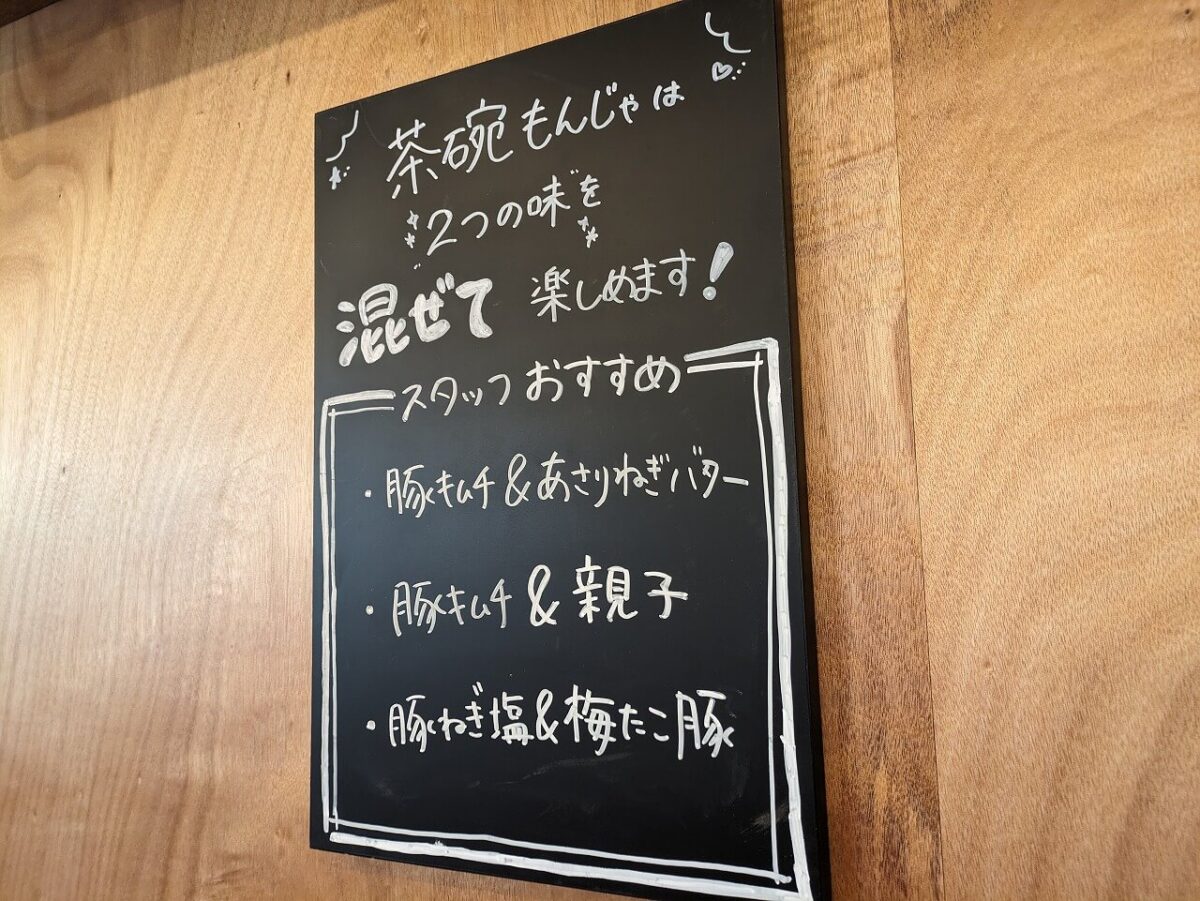 茶碗もんじゃは
2つの味を
混ぜて 楽しめます!
スタッフおすすめ
・豚キムチ&あさりねぎバター
・豚キムチ&親子
・豚ねぎ塩&梅たこ豚